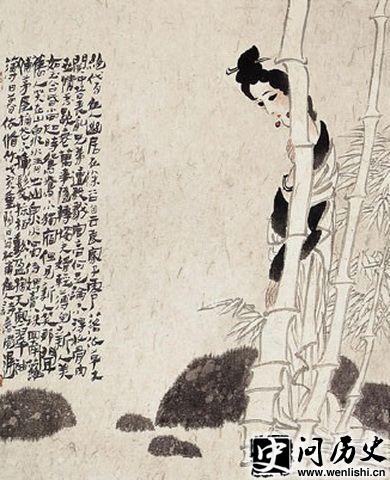 絕代有佳人幽居在深谷自云良家子零落依草木
關中昔喪亂兄弟遭殺戮官高何足論不得收骨肉
世情惡衰歇萬事隨轉燭夫婿輕薄兒新人美
如玉合昏尚知時鴛鴦不獨宿但見新人笑那聞
舊人哭在山泉水清出山泉水濁侍婢賣珠迴牽蘿
補茅屋摘花不插髮采柏動盈掬天寒翠袖
薄日暮依脩竹
史问历史
www.wenlishi.cn